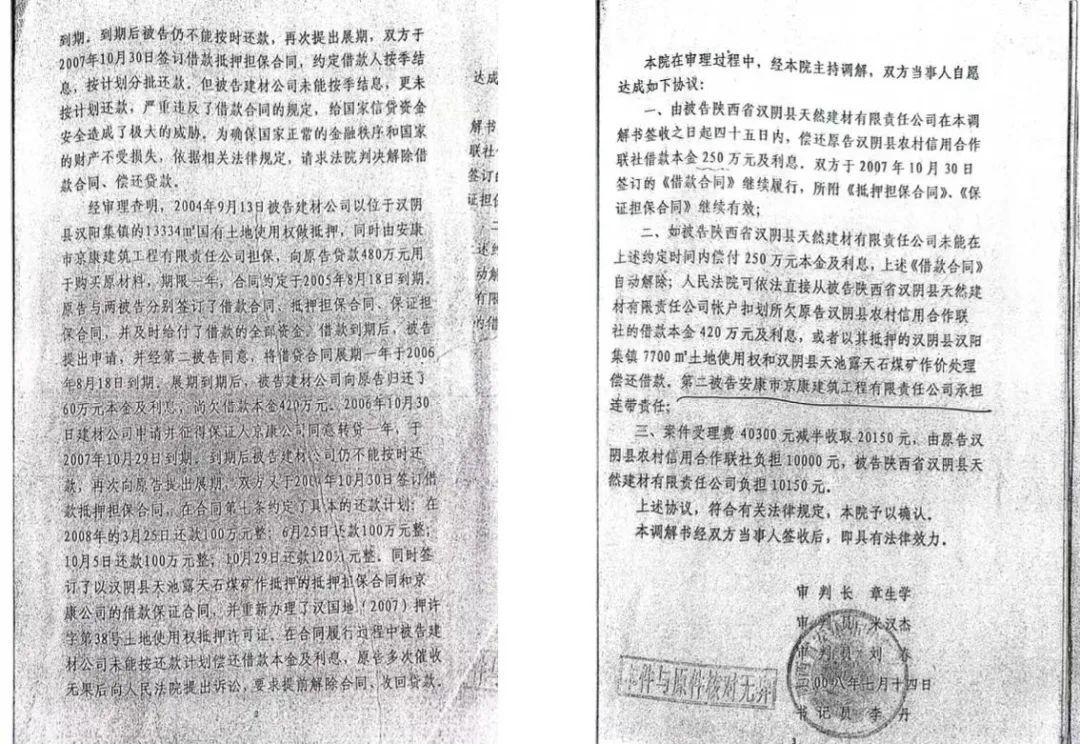 到期。到期后被告仍不能按时还款，再次提出展期，双方于
2007年10月30日签订借款抵押担保合同，约定借款人按季结
息，按计划分批还款。但被告建材公司未能按季结息，更未
按计划还款，严重违反了借款合同的规定，给国家信贷资金
安全造成了极大的威胁。为确保国家正常的金融秩序和国家
的财产不受损失，依据相关法律规定，请求法院判决解除借
款合同、偿还贷款。
经审理查明，2004年9月13日被告建材公司以位于汉阴
县汉阳集镇的13334㎡国有土地使用权做抵押，同时由安康
市京康建筑工程有限责任公司担保，向原告贷款480万元用
于购买原材料，期限一年，合同约定于2005年8月18日到期。
原告与两被告分别签订了借款合同、抵押担保合同、保证担
保合同，并及时给付了借款的全部资金。借款到期后，被告
提出申请，并经第二被告同意，将借贷合同展期一年于2006
年8月18日到期。展期到期后，被告建材公司向原告归还了
60万元本金及利息，尚欠借款本金420万元。2006年10月30
日建材公司申请并征得保证人京康公司同意转贷一年，于
2007年10月29日到期。到期后被告建材公司仍不能按时还
款，再次向原告提出展期。双方又于200 年10月30日签订借
款抵押担保合同。在合同第七条约定了具体的还款计划：在
2008年的3月25日还款100万元整；6月25日还款100万元整；
10月5日还款100万元整；10月29日还款120万元整。同时签
订了以汉阴县天池露天石煤矿作抵押的抵押担保合同和京
康公司的借款保证合同，并重新办理了汉国地（2007）押许
字第38号土地使用权抵押许可证。在合同履行过程中被告建
材公司未能按还款计划偿还借款本金及利息，原告多次催收
无果后向人民法院提出诉讼，要求提前解除合同、收回贷款。
2
达成
解书
联社
签订的
证担保
二
上述
动解
有限
的借
本院在审理过程中，经本院主持调解，双方当事人自愿
达成如下协议：
一、由被告陕西省汉阴县天然建材有限责任公司在本调
解书签收之日起四十五日内，偿还原汉阴县农村信用合作
联社借款本金 250 万元及利息。双方于 2007 年 10 月 30 日
签订的《借款合同》继续履行，所附《抵押担保合同》、《保
证担保合同》继续有效；
二、如被告陕西省汉阴县天然建材有限责任公司未能在
上述约定时间内偿付 250 万元本金及利息，上述《借款合同》
自动解除；人民法院可依法直接从被告陕西省汉阴县天然建
材有限责任公司帐户扣划所欠原告汉阴县农村信用合作联
社的借款本金 420 万元及利息，或者以其抵押的汉阴县汉阳
集镇 7700 ㎡土地使用权和汉阴县天池露天石煤矿作价处理
偿还借款。第二被告安康市京康建筑工程有限责任公司承担
连带责任；
三、案件受理费 40300 元减半收取 20150 元，由原告汉
阴县农村信用合作联社负担 10000 元，被告陕西省汉阴县天
然建材有限责任公司负担 10150 元。
上述协议，符合有关法律规定，本院予以确认。
本调解书经双方当事人签收后，即具有法律效力。
审 判 长 章生学
审 判 员 米汉杰
审 判 员 刘 春
00八年七月十四日
本件与原件核对无异
书 记 员 李 丹
3